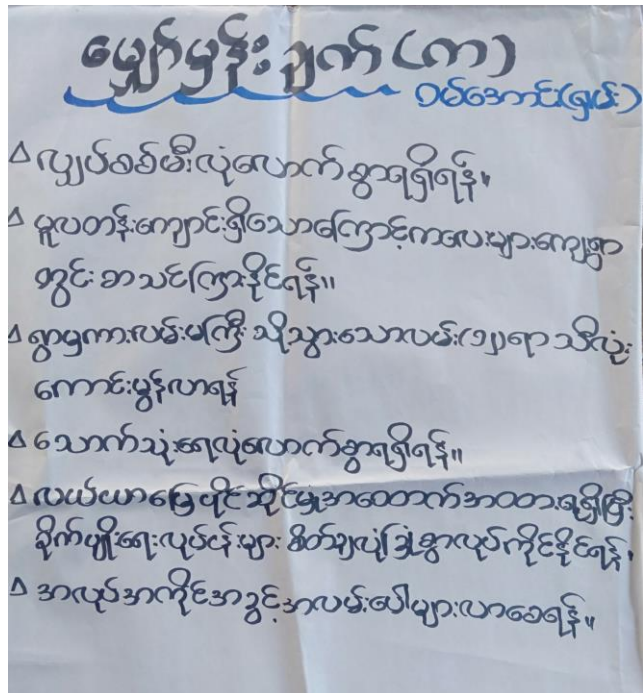 မျှော်မှန်းချက် (က)
ဝမ်အောင်(ရှမ်း)
∆ လျှပ်စစ်မီးလုံလောက်စွာရရှိရန်။
∆ မူလတန်းကျောင်းရှိသောကြောင့်ကလေးများကျေးရွာ
တွင်းစာသင်ကြားနိုင်ရန်။
∆ ရွာမှကားလမ်းမကြီးသို့သွားသောလမ်း(၁၂)ရာသီလုံး
ကောင်းမွန်လာရန်
∆ သောက်သုံးရေလုံလောက်စွာရရှိရန်။
∆ လယ်ယာမြေပိုင်ဆိုင်မှုအထောက်အထားရရှိပြီး
စိုက်ပျိုးရေးလုပ်ငန်းများ စိတ်ချလုံခြုံစွာလုပ်ကိုင်နိုင်ရန်။
∆ အလုပ်အကိုင်အခွင့်အလမ်းပေါများလာစေရန်။